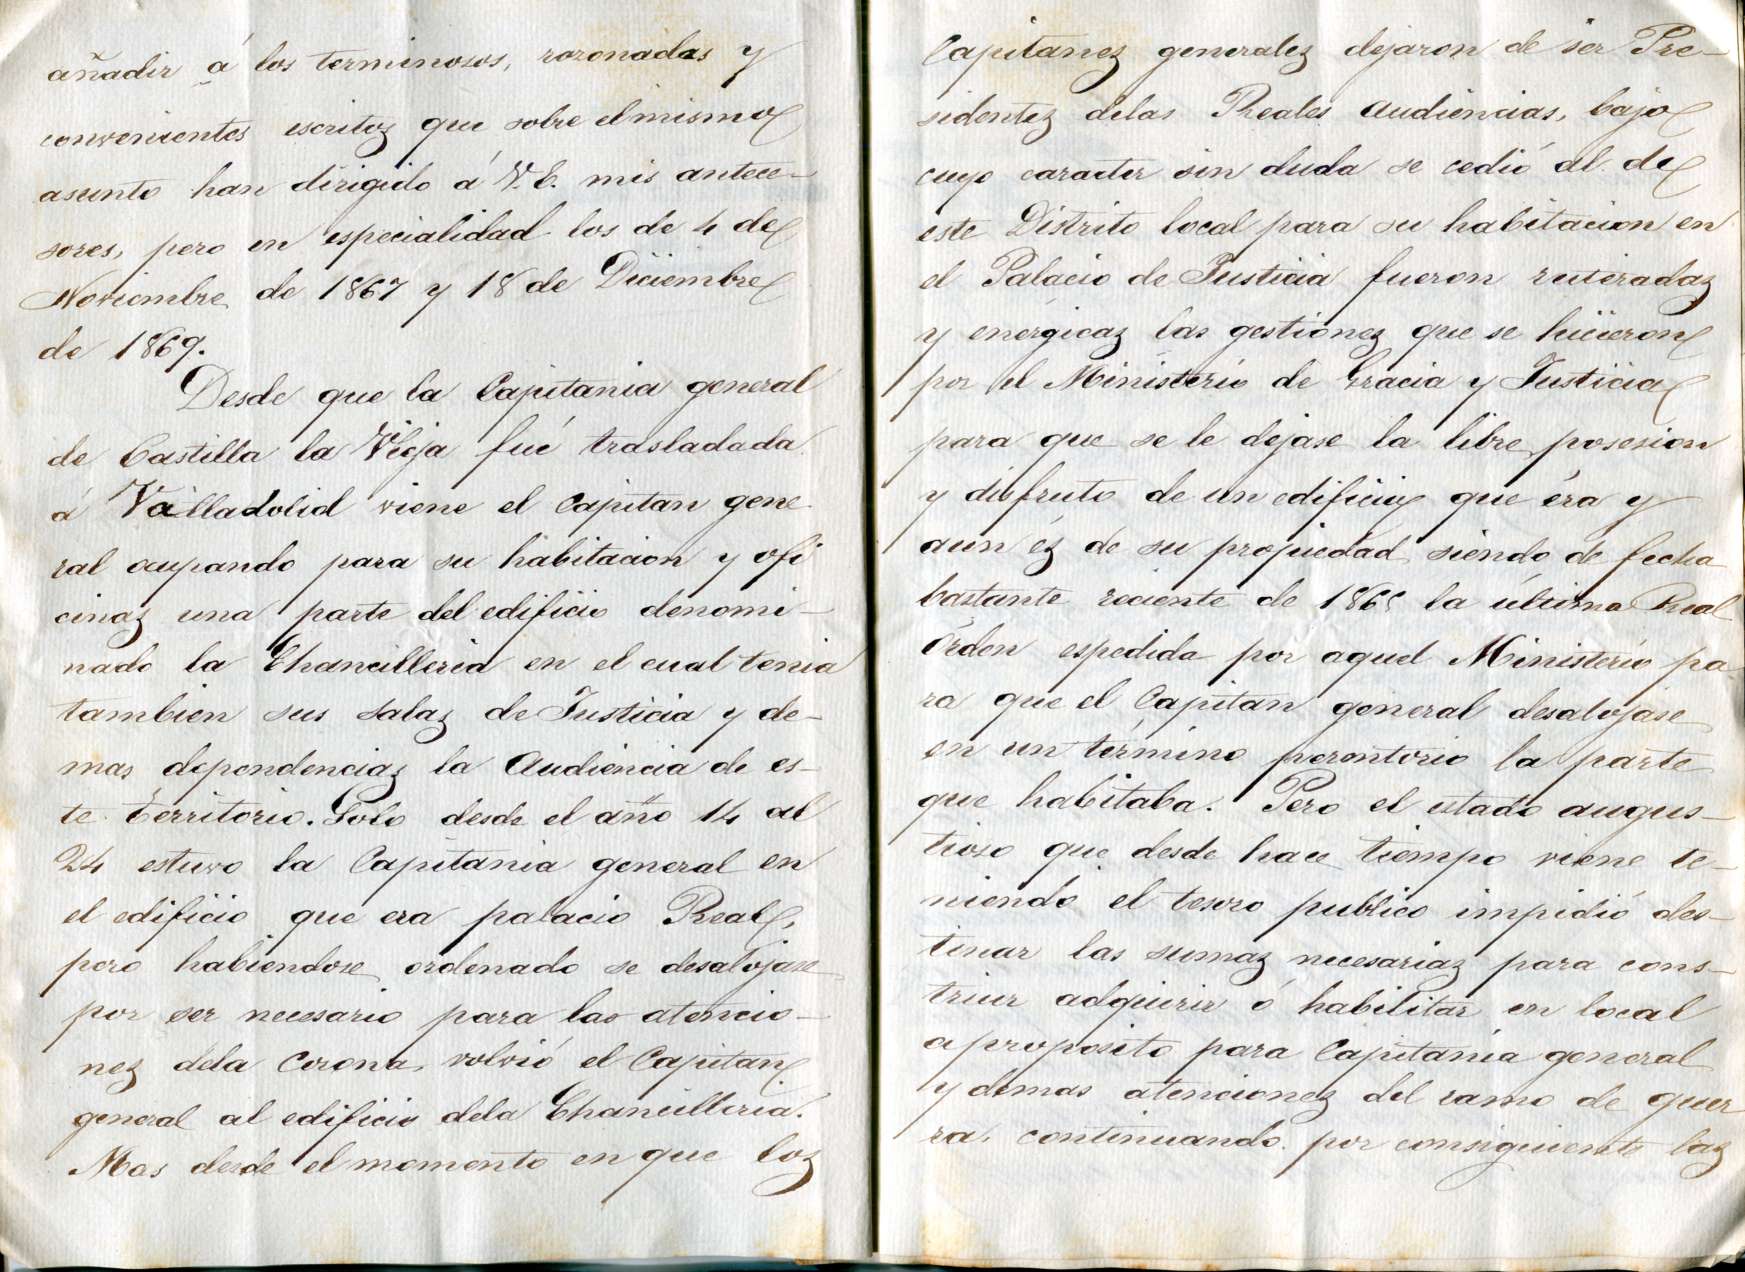 añadir á los terminosos, razonadas y
convenientes escritoz que sobre el mismo
asunto han dirigido á V.E. mis antece-
sores, pero en especialidad los de 4 de
Noviembre de 1867 y 18 de Diciembre
de 1869.
Desde que la Capitania general
de Castilla la Vieja fué trasladada
á Valladolid viene el Capitan gene
ral ocupando para su habitacion y ofi
cinaz una parte del edificio denomi-
nado la Chancilleria en el cual tenia
tambien sus salaz de Justicia y de-
mas dependenciaz la Audiencia de es-
te territorio. Solo desde el año 14 al
24 estuvo la Capitania general en
el edificio que era palacio Real,
pero habiendose ordenado se desalojase
por ser necesario para las atencio-
nez dela Corona, volvió el Capitan
general al edificio dela Chancilleria.
Mas desde el momento en que loz
Capitanez generalez dejaron de ser Pre-
sidentez delas Reales Audiencias, bajo
cuyo caracter sin duda se cedió al de
este Distrito local para su habitacion en
el Palacio de Justicia fueron reiteradaz
y enérgicaz las gestionez que se hicieron
por el Ministerio de Gracia y Justicia
para que se le dejase la libre posesion
y disfruto de un edificio que éra y
aun éz de su propiedad siendo de fecha
bastante reciente de 1865 la última Real
órden espedida por aquel Ministerio pa
ra que el Capitan general desalojase
en un término perentorio la parte
que habitaba. Pero el estado angus-
tioso que desde hace tiempo viene te-
niendo el tesoro publico impidió des-
tinar las sumaz necesariaz para cons-
truir adquirir ó habilitar en local
aproposito para Capitania general
y demas atencionez del ramo de guer
ra, continuando por consiguiente laz